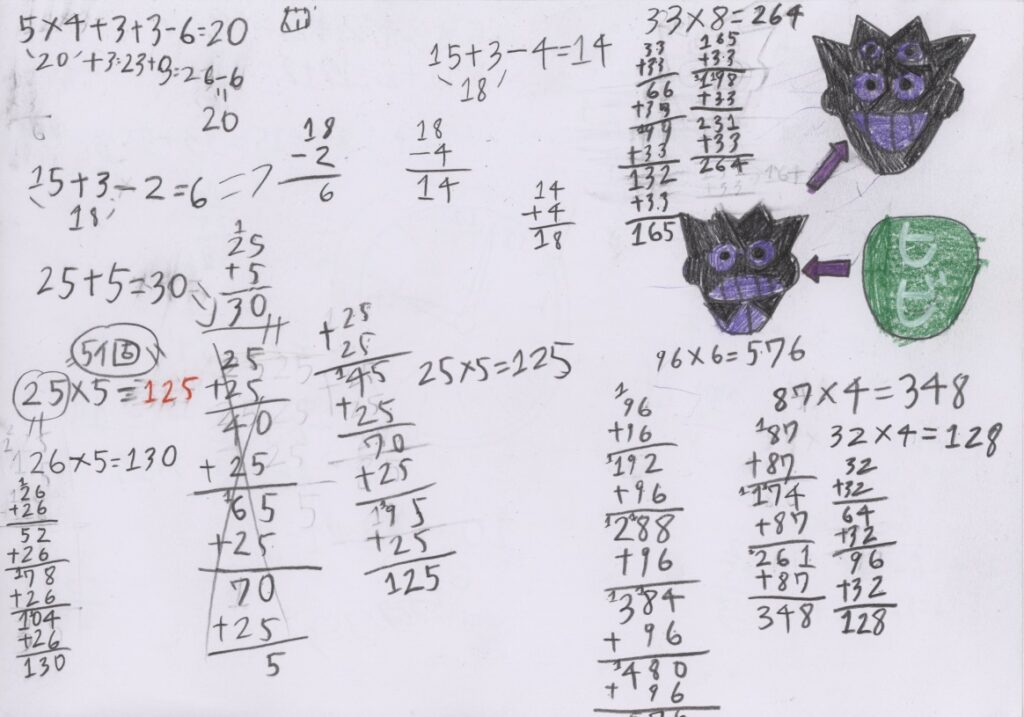 5×4+3+3-6=20
20+3=23+3=26-6
=
20
15+3-4=14
18
15+3-2=6
18
18
-2
6
18
-4
14
14
+4
18
25+5=30
1
25
+5
30
25×5=125
25
+25
40
+25
65
+25
70
+25
5
+25
25
45
+25
70
+25
95
+25
125
25×5=125
26×5=130
1
26
+26
52
+26
178
+26
104
+26
130
33×8=264
33
+33
66
+33
99
+33
132
+33
165
165
+33
198
+33
231
+33
264
96×6=576
1
96
+96
192
+96
288
+96
384
+96
480
+96
576
87×4=348
87
+87
174
+87
261
+87
348
32×4=128
32
+32
64
+32
96
+32
128